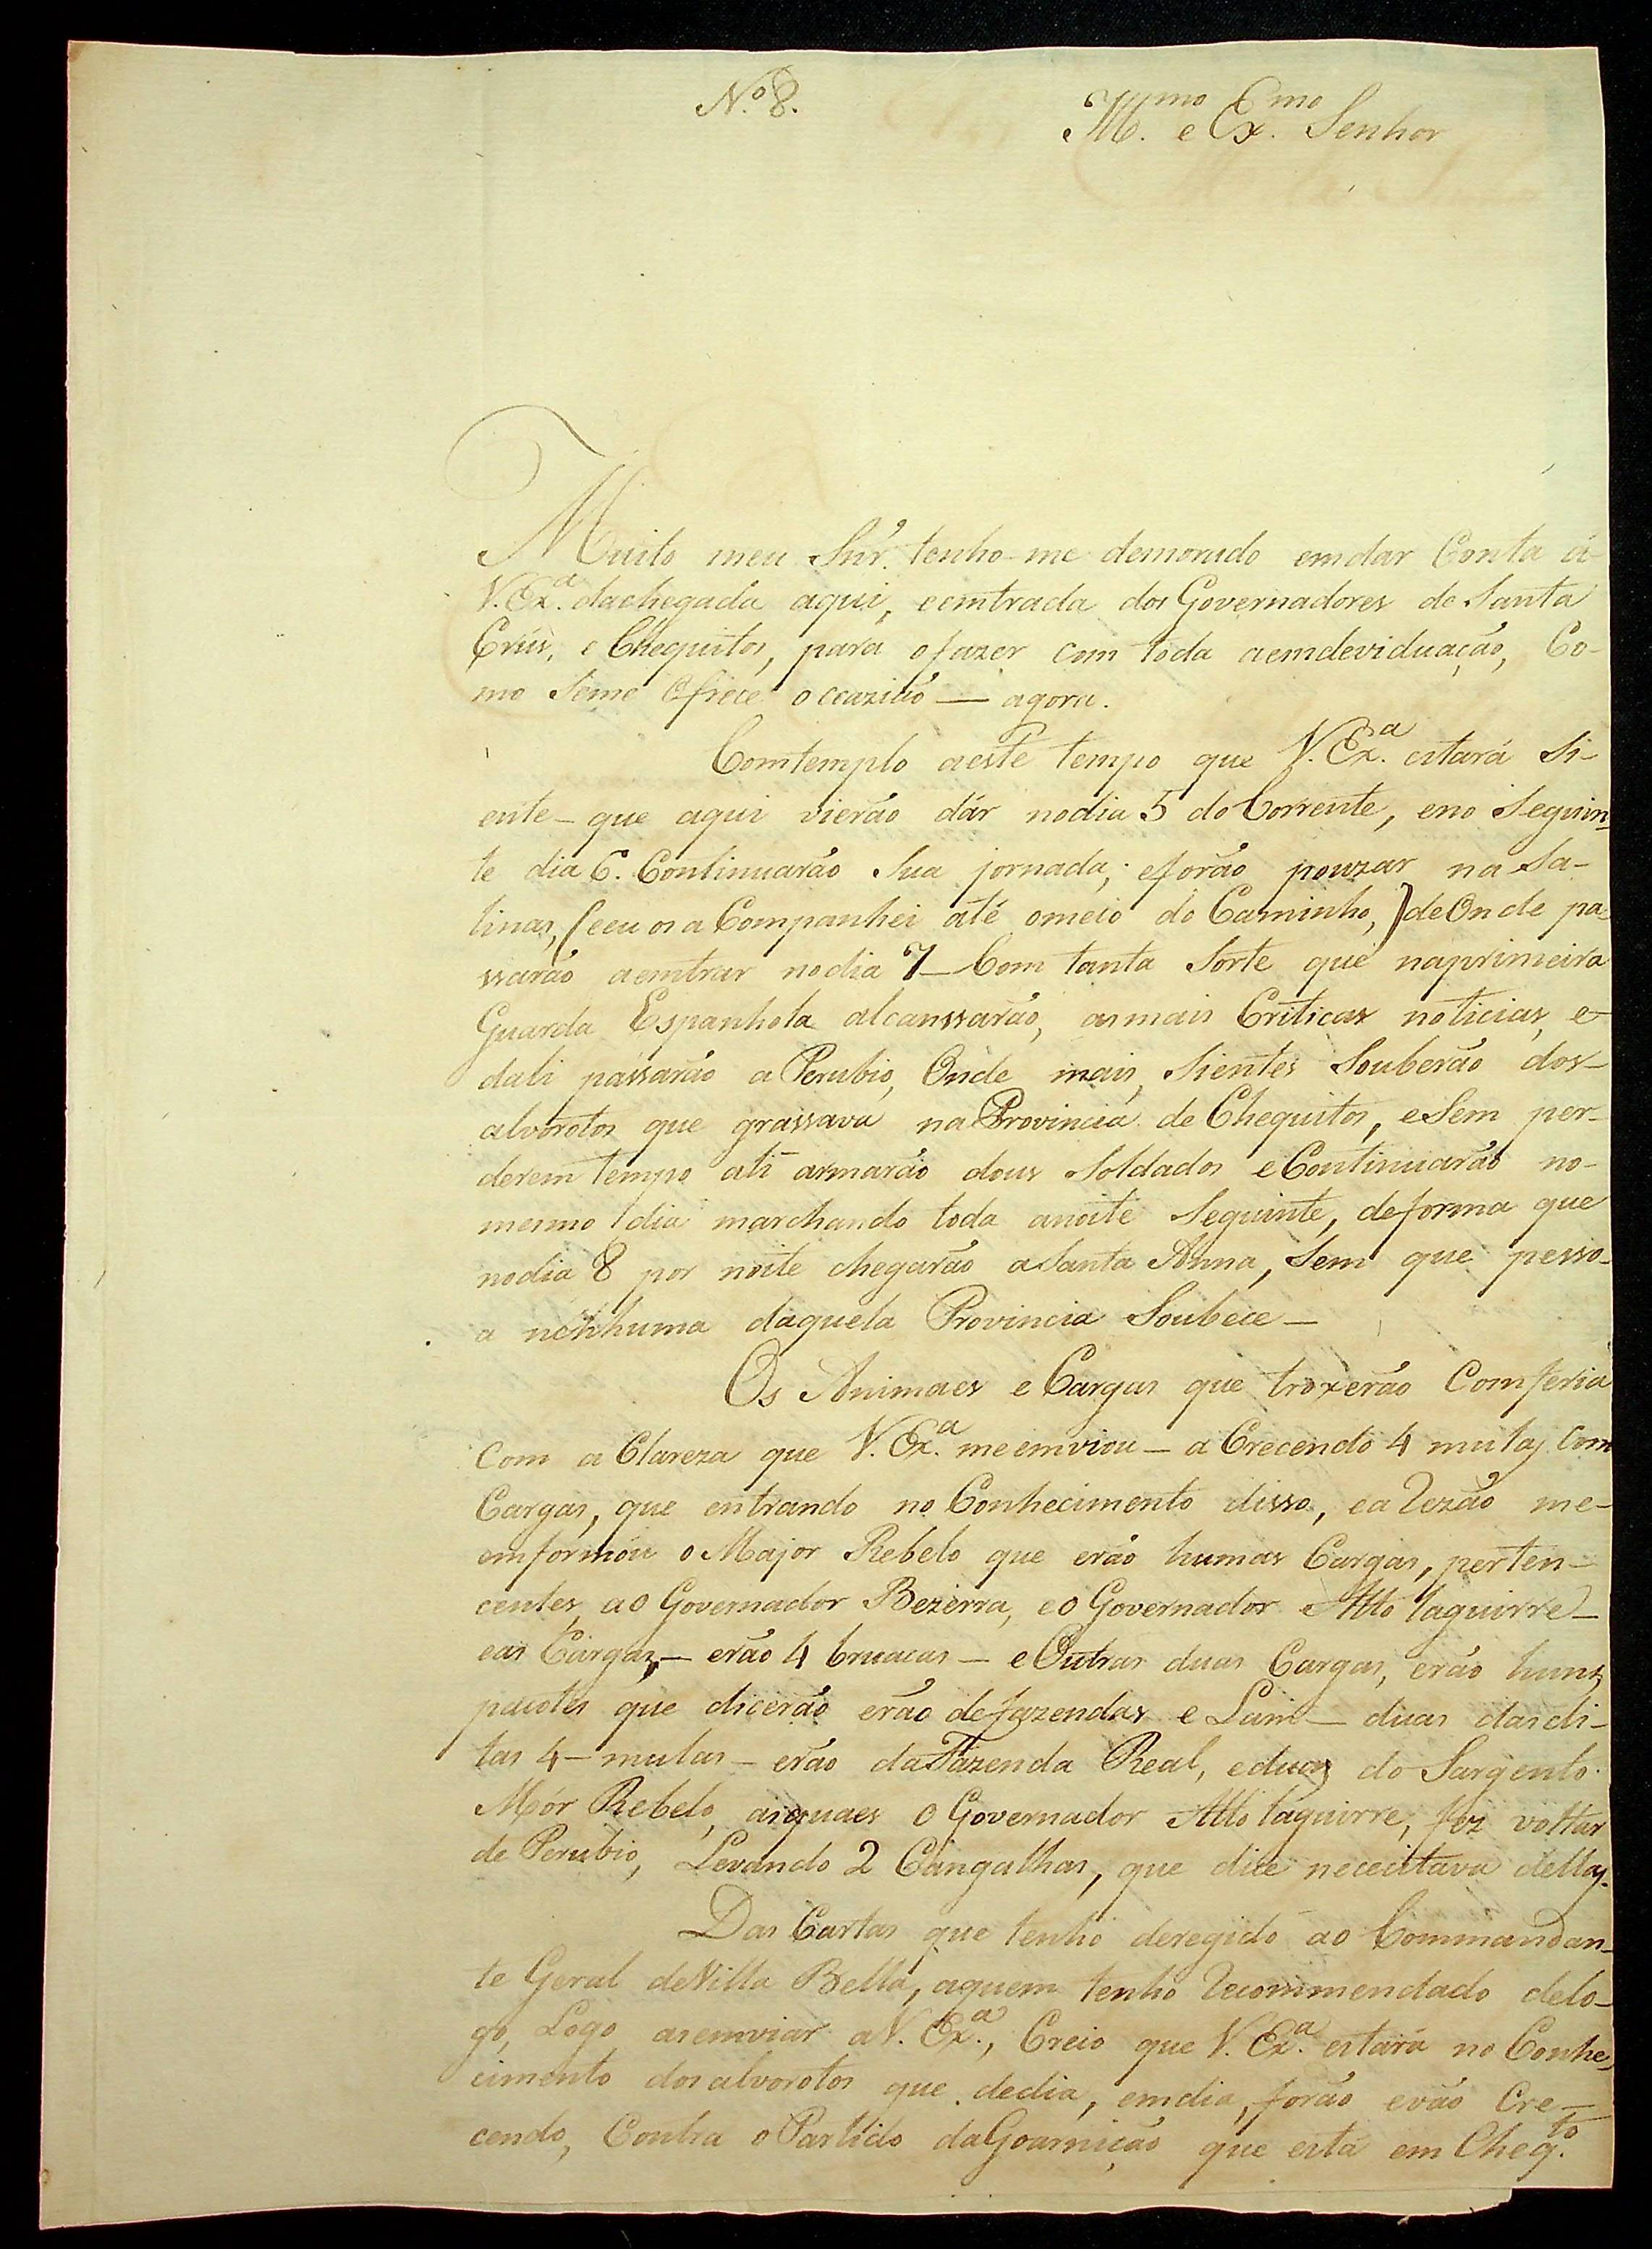 N.º 8.
Ill.mo e Ex.mo Senhor
Muito meu Snr. tenho-me demorado emdar Conta á
V. Ex.ª dachegada aqui, eemtrada dos Governadores de Santa
Crús, e Chequitos, para ofazer com toda aemdeviduação, Co-
mo Seme Ofrece occazião — agora.
Comtemplo aeste tempo que V. Ex.ª estará Si-
ente — que aqui vierão dár nodia 5 do Corrente, eno Seguin-
te dia 6. Continuarão Sua jornada; eforão pouzar na Sa-
linas, (eeu os aCompanhei até omeio do Caminho,) deOnde pa-
ssarão aemtrar nodia 7 — Com tanta Sorte que naprimeira
Guarda Espanhola alcanssarão, asmais Criticas noticias, e
dali passarão a Perubio, Onde mais, Sientes Souberão dos-
alvorotos que grassava na Provincia de Chequitos, eSem per-
derem tempo ali armarão dous Soldados eContinuarão no-
mesmo dia marchando toda anoite Seguinte, deforma que
nodia 8 por noite chegarão aSanta Anna, Sem que pesso-
a nenhuma daquela Provincia Soubece —
Os Animaes e Cargas que troxerão Comferia
Com a Clareza que V. Ex.ª meemviou — aCrecendo 4 mulas Com
Cargas, que entrando no Conhecimento disso, ea Rezão me-
emformou o Major Rebelo que erão humas Cargas, perten-
centes, ao Governador Bezerra, eo Governador Alto laguirre —
eas Cargas, — erão 4 bruacas — eOutras duas Cargas, erão huns
pacotes que dicerão erão defazendas e Lam — duas dasdi-
tas 4 — mulas — erão daFazenda Real, eduas do Sargento.
Mór Rebelo, asquaes o Governador Alto laguirre, fez voltar
de Perubio, Levando 2 Cangalhas, que dice necesitava dellas.
Das Cartas que tenho deregido ao Commandan-
te Geral deVilla Bella, aquem tenho Recommendado delo-
go, Logo asemviar aV. Ex.ª, Creio que V. Ex.ª estará no Conhe-
cimento dosalvorotos que dedia, emdia, forão evão Cre-
cendo, Contra oPartido daGoarnição que está em Cheq.to